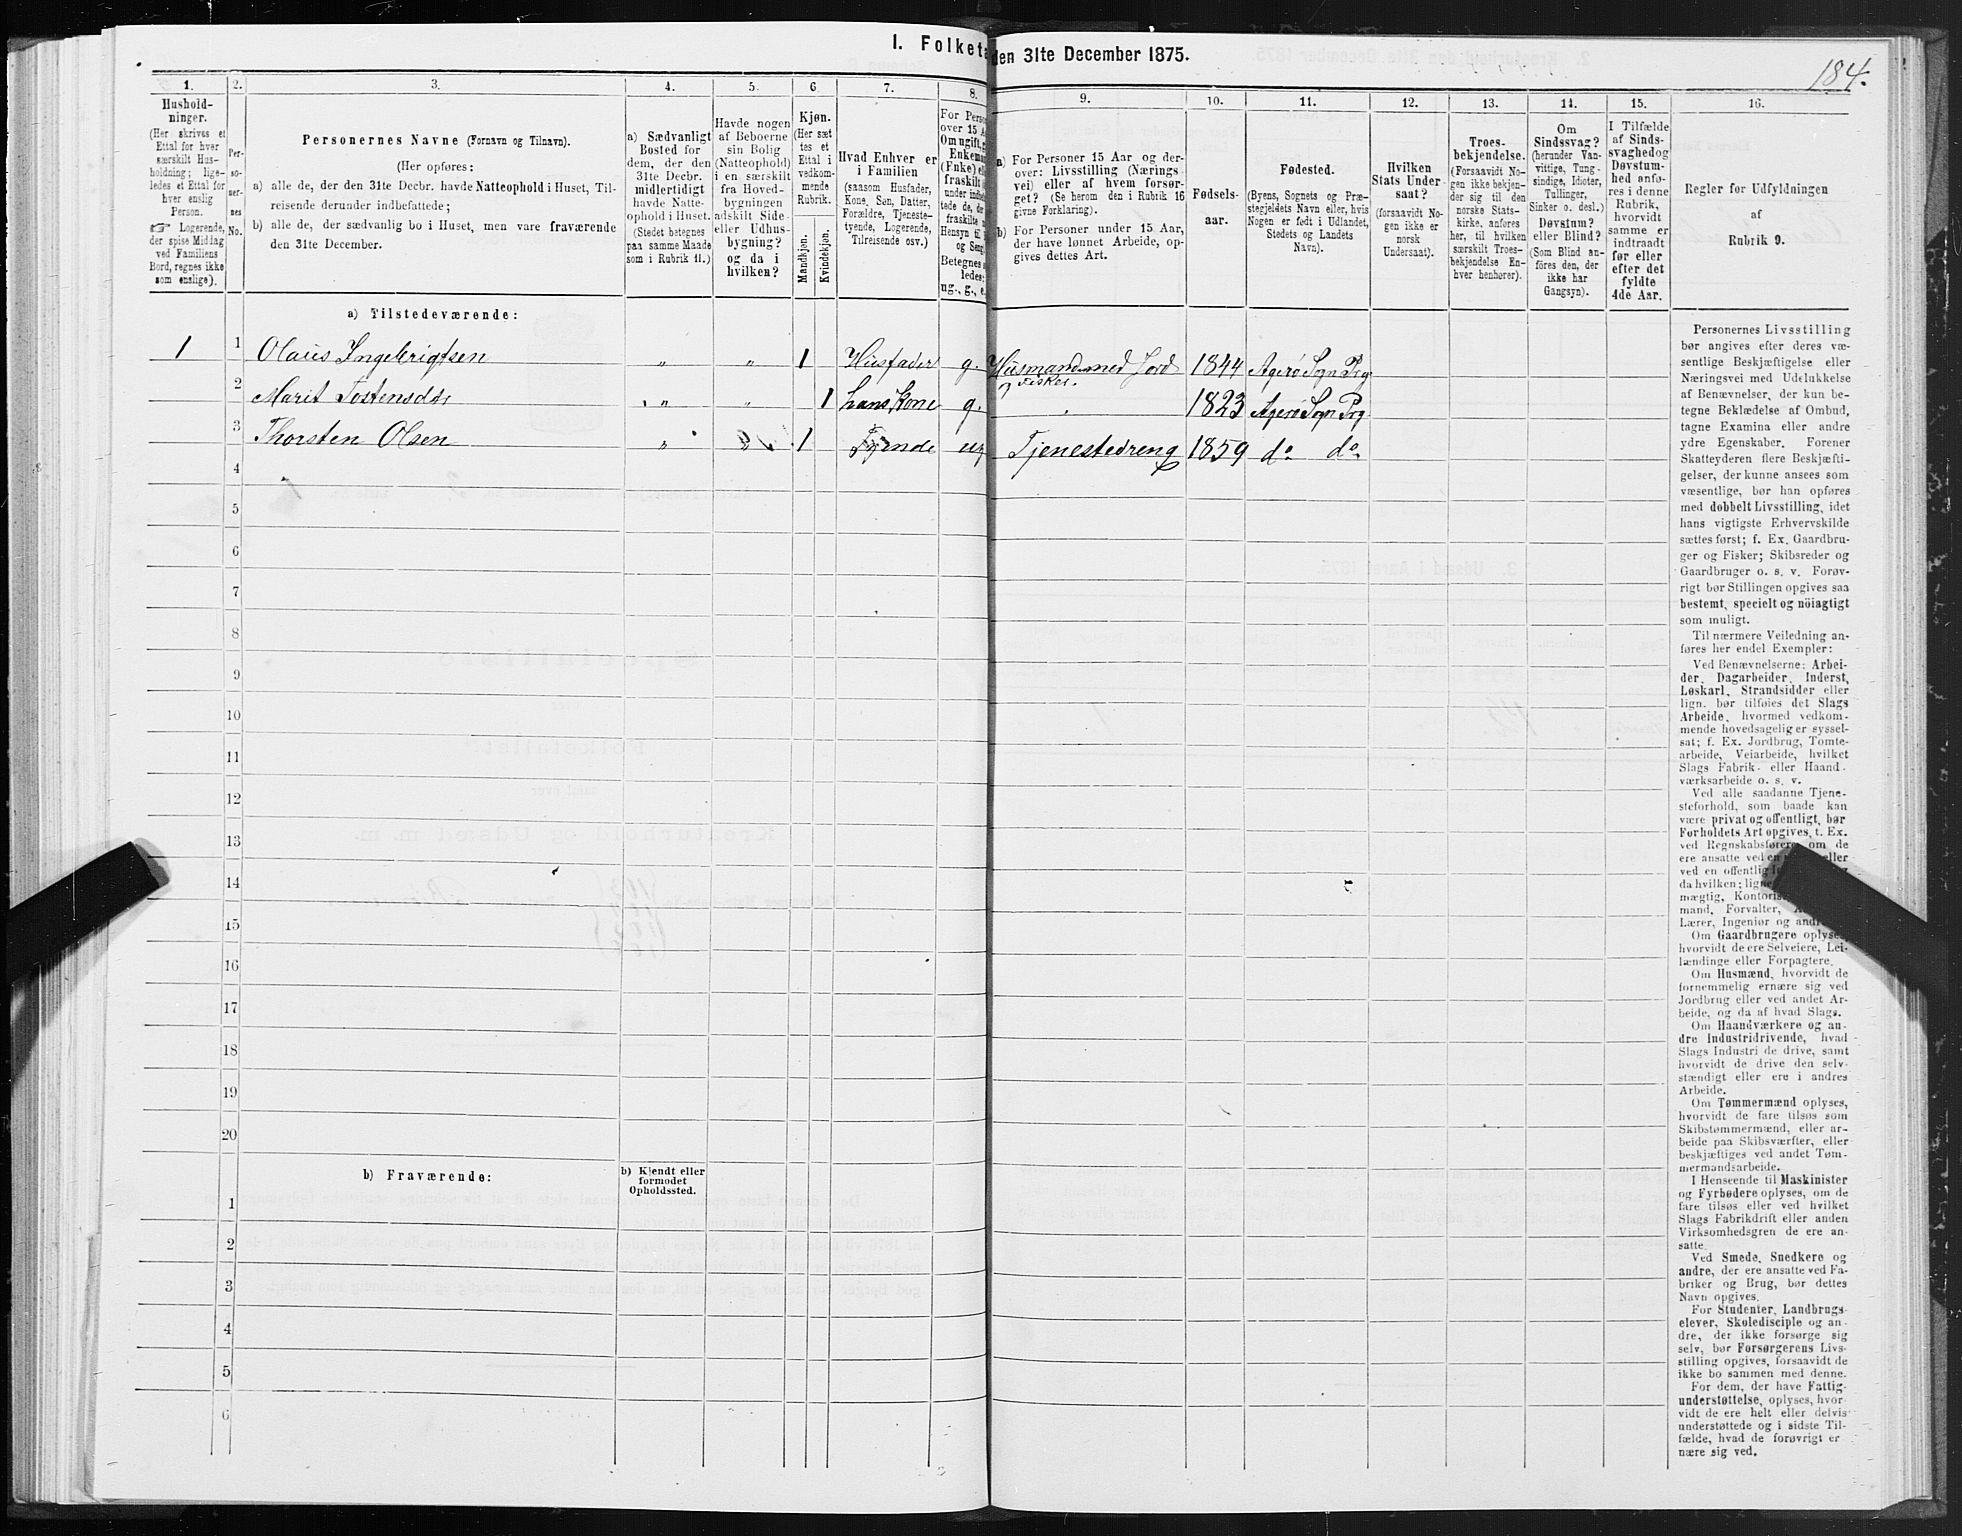 I. Folketa
den 31te December 1875.
184.
1.
Hushold-
ninger.
(Her skrives et
Ettal for hver
særskilt Hus-
holdning; lige-
ledes et Ettal for
hver enslig
Person.
☞ Logerende,
der spise Middag
ved Familiens
Bord, regnes ikke
som enslige).
2.
Per-
so-
ner-
nes
No.
3.
Personernes Navne (Fornavn og Tilnavn).
(Her opføres:
a) alle de, der den 31te Decbr. havde Natteophold i Huset, Til-
reisende derunder indbefattede;
b) alle de, der sædvanlig bo i Huset, men vare fraværende
den 31te December.
4.
a) Sædvanligt
Bosted for
dem, der den
31te Decbr.
midlertidigt
havde Natte-
ophold i Huset.
(Stedet betegnes
paa samme Maade
som i Rubrik 11.)
5.
Havde nogen
af Beboerne
sin Bolig
(Natteophold)
i en særskilt
fra Hoved-
bygningen
adskilt Side-
eller Udhus-
bygning?
og da i
hvilken?
6.
Kjøn.
(Her sæt
tes et
Ettal i
vedkom-
mende
Rubrik.
Mandkjøn.
Kvindekjøn.
7.
Hvad Enhver er
i Familien
(saasom Husfader,
Kone, Søn, Datter,
Forældre, Tjeneste-
tyende, Logerende,
Tilreisende osv.)
8.
For Perso
over 15 A
Om ugift, g
Enkema
(Enke) el
fraskilt
under indbe
tede de, d
fraskilte
Hensyn til
og Seng
Betegnes s
ledes:
ug., g., e.
9.
a) For Personer 15 Aar og der-
over: Livsstilling (Nærings-
vei) eller af hvem forsør-
get? (Se herom den i Rubrik 16
givne Forklaring).
b) For Personer under 15 Aar,
der have lønnet Arbeide, op-
gives dettes Art.
10.
Fødsels-
aar.
11.
Fødested.
(Byens, Sognets og Præ-
stegjeldets Navn eller, hvis
Nogen er født i Udlandet,
Stedets og Landets
Navn).
12.
Hvilken
Stats Under-
saat?
(forsaavidt No-
gen ikke er
norsk
Undersaat).
13.
Troes-
bekjendelse.
(Forsaavidt No-
gen ikke bekjen-
der sig til den
norske Stats-
kirke, anføres
her, til hvilken
særskilt Troes-
bekjendelse En-
hver henhører).
14.
Om
Sindssvag?
(herunder Van-
vittige, Tung-
sindige, Idioter,
Tullinger,
Sinker o. desl.)
Døvstum?
eller Blind?
(Som Blind an-
føres den, der
ikke har
Gangsyn).
15.
I Tilfælde
af Sinds-
svaghed og
Døvstum-
hed anfø-
res i denne
Rubrik,
hvorvidt
samme er
indtraadt
før eller
efter det
fyldte
4de Aar.
16.
Regler for Udfyldningen
af
Rubrik 9.
a) Tilstedeværende:
1 1 Olaus Ingebrigtsen „ „ 1 Husfader g. Husmand med Jord 1844 Agerø Sogn Prg.
og Fisker.
2 Marit Tostensdtr „ „ 1 hans Kone g. „ 1823 Agerø Sogn Prg
3 Thorsten Olsen „ „ 1 Tyende ug Tjenestedreng 1859 do do
4
5
6
7
8
9
10
11
12
13
14
15
16
17
18
19
20
b) Fraværende:
b) Kjendt eller
formodet
Opholdssted.
1
2
3
4
5
6
Personernes Livsstilling
bør angives efter deres væ-
sentlige Beskjæftigelse eller
Næringsvei med Udelukkelse
af Benævnelser, der kun be-
tegne Beklædelse af Ombud,
tagne Examina eller andre
ydre Egenskaber. Forener
Skatteyderen flere Beskjæfti-
gelser, der kunne ansees som
væsentlige, bør han opføres
med dobbelt Livsstilling, idet
hans vigtigste Erhvervskilde
sættes først; f. Ex. Gaardbru-
ger og Fisker; Skibsreder og
Gaardbruger o. s. v. Forøv-
rigt bør Stillingen opgives saa
bestemt, specielt og nøiagtigt
som muligt.
Til nærmere Veiledning an-
føres her endel Exempler:
Ved Benævnelserne: Arbei-
der, Dagarbeider, Inderst,
Løskarl, Strandsidder eller
lign. bør tilføies det Slags
Arbeide, hvormed vedkom-
mende hovedsagelig er syssel-
sat; f. Ex. Jordbrug, Tomte-
arbeide, Veiarbeide, hvilket
Slags Fabrik- eller Haand-
værksarbeide o. s. v.
Ved alle saadanne Tjene-
steforhold, som baade kan
være privat og offentligt, bør
Forholdets Art opgives, t. Ex.
ved Regnskabsførere, om de
ere ansatte ved en eller
ved en offentlig
da hvilken; lign
mægtig, Kontoris
mand, Forvalter,
Lærer, Ingeniør og and
Om Gaardbrugere oplyses,
hvorvidt de ere Selveiere, Lei-
lændinge eller Forpagtere.
Om Husmænd, hvorvidt de
fornemmelig ernære sig ved
Jordbrug eller ved andet Ar-
beide, og da af hvad Slags.
Om Haandværkere og an-
dre Industridrivende, hvad
Slags Industri de drive, samt
hvorvidt de drive den selv-
stændigt eller ere i andres
Arbeide.
Om Tømmermænd oplyses,
hvorvidt de fare tilsøs som
Skibstømmermænd, eller ar-
beide paa Skibsværfter, eller
beskjæftiges ved andet Tøm-
mermandsarbeide.
I Henseende til Maskinister
og Fyrbødere oplyses, om de
fare tilsøs eller ved hvilket
Slags Fabrikdrift eller anden
Virksomhedsgren de ere an-
satte.
Ved Smede, Snedkere og
andre, der ere ansatte ved Fa-
briker og Brug, bør dettes
Navn opgives.
For Studenter, Landbrugs-
elever, Skoledisciple og an-
dre, der ikke forsørge sig
selv, bør Forsørgerens Livs-
stilling opgives, forsaavidt de
ikke bo sammen med denne.
For dem, der have Fattig-
understøttelse, oplyses, hvor-
vidt de ere helt eller delvis
understøttede og i sidste Til-
fælde, hvad de forøvrigt er
nære sig ved.